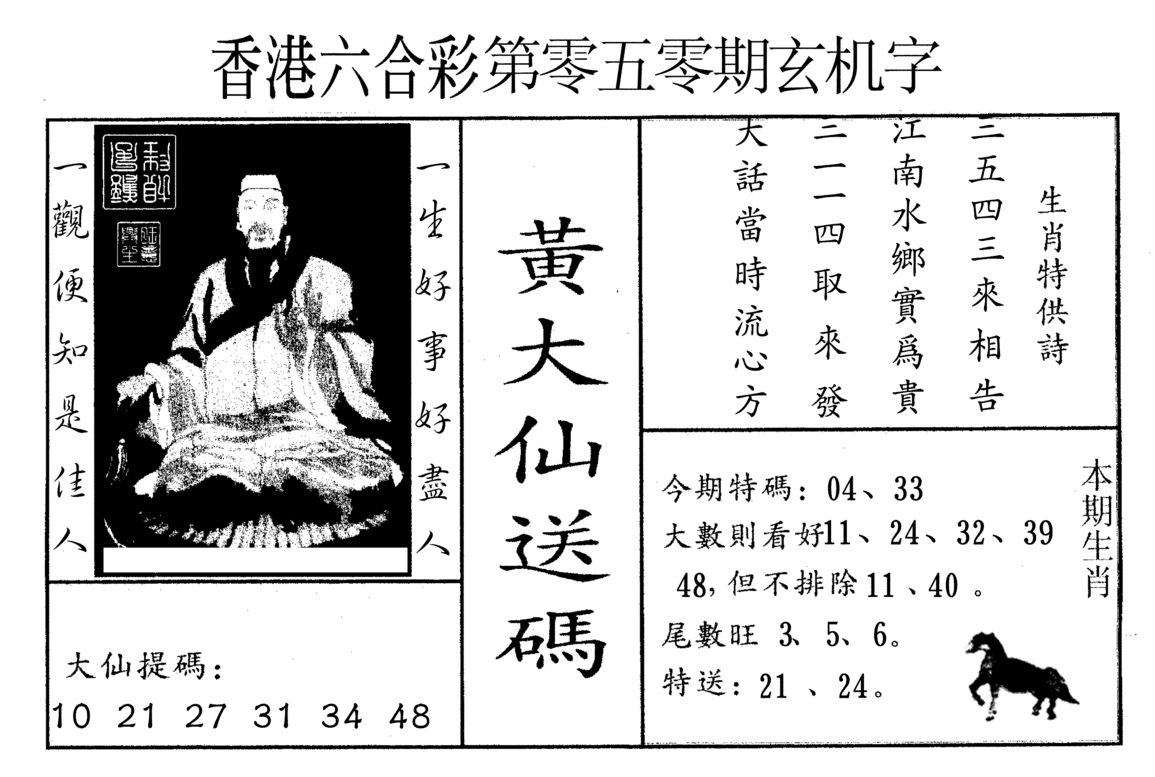 香港六合彩第零五零期玄机字
一生好事好盡人
一觀便知是佳人
大仙提碼：
10 21 27 31 34 48
黃大仙送碼
生肖特供詩
三五四三來相告
江南水鄉實爲貴
三一一四取來發
大話當時流心方
本期生肖
今期特碼：04、33
大數則看好11、24、32、39
48，但不排除11、40。
尾數旺 3、5、6。
特送：21、24。